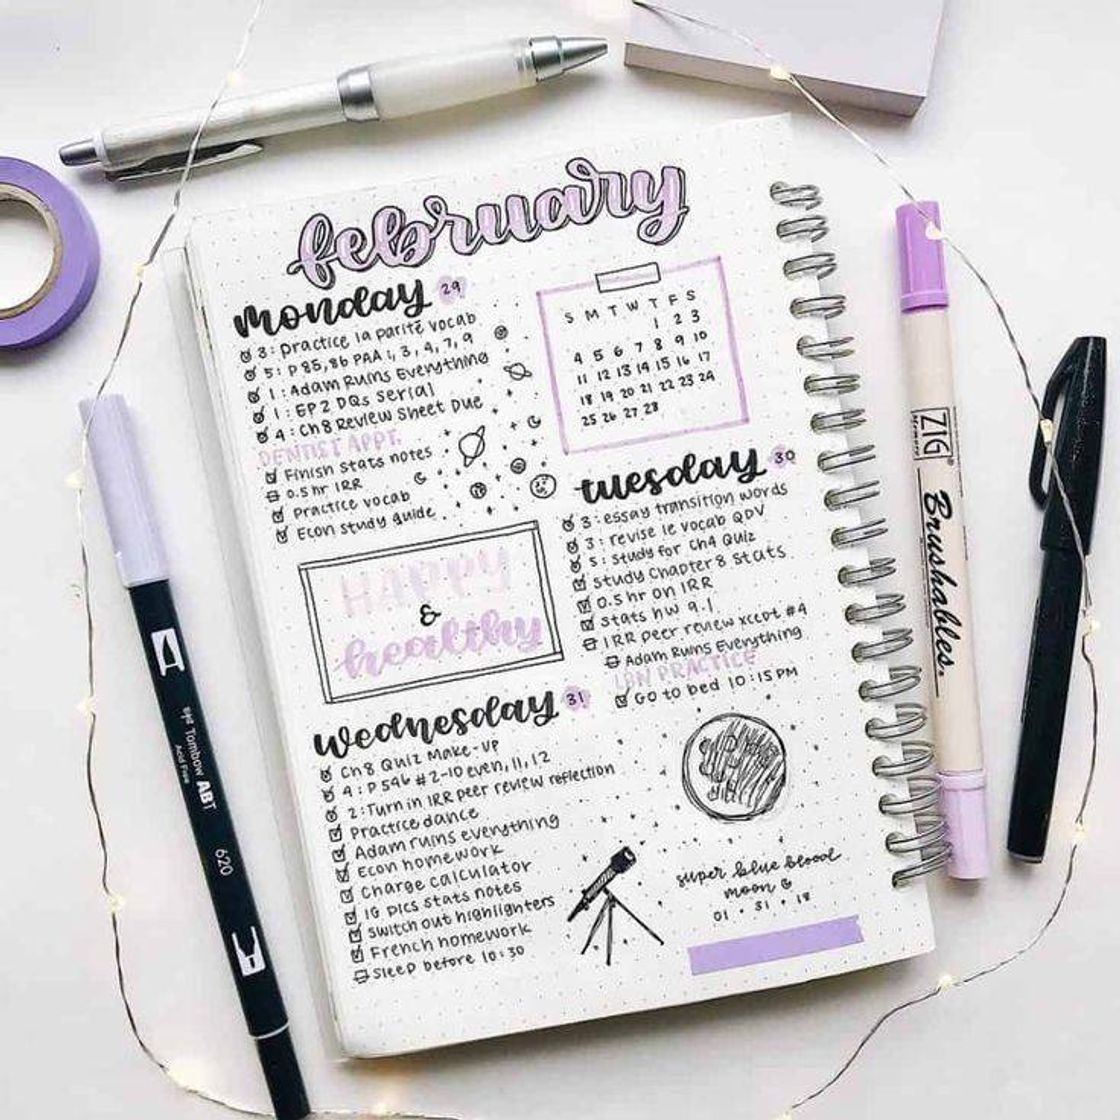 february
monday 29
3: Practice la parité vocab
5: P 85, 86 PAA 1, 3, 4, 7, 9
1: Adam Ruins Everything
1: EP 2 DQs Serial
4: Ch 8 Review Sheet Due
DENTIST APPT.
Finish stats notes
0.5 hr IRR
Practice vocab
Econ study guide
S M T W T F S
1 2 3
4 5 6 7 8 9 10
11 12 13 14 15 16 17
18 19 20 21 22 23 24
25 26 27 28
tuesday 30
3: essay transition words
3: revise le vocab QDV
5: study for Ch4 Quiz
study Chapter 8 Stats
0.5 hr on IRR
Stats hw 9.1
IRR peer review xcept #4
Adam Ruins Everything
PRACTICE
Go to bed 10:15 PM
HAPPY
&
healthy
wednesday 31
Ch 8 Quiz Make-UP
4: P 546 #2-10 even, 11, 12
2: Turn in IRR peer review reflection
Practice dance
Adam ruins everything
Econ homework
Charge calculator
IG pics stats notes
switch out highlighters
French homework
Sleep before 10:30
super blue blood
moon
01 • 31 • 18
Tombow ABT
Acid Free
620
ZIG
Brushables.